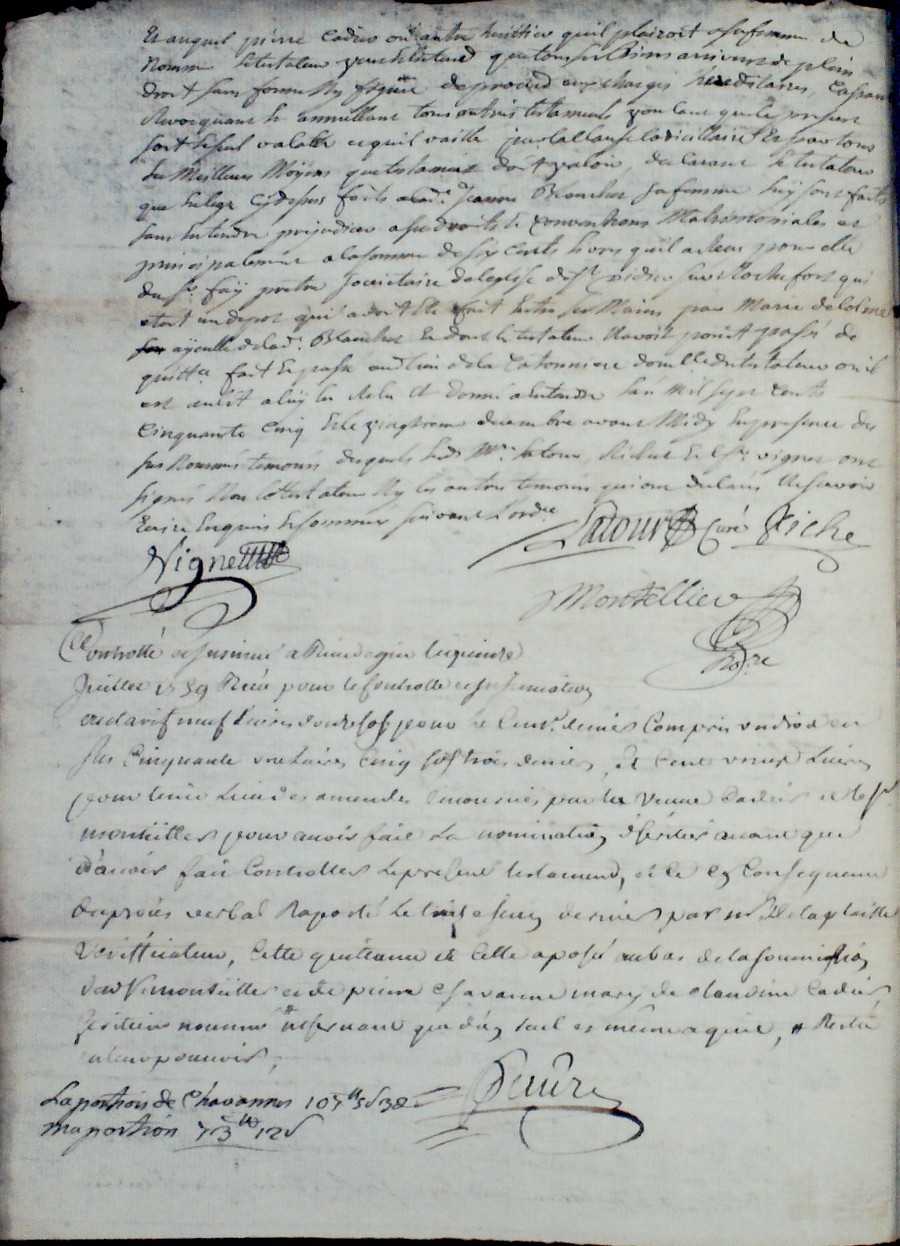 Et auquel pierre Cadier ou autre heritier quil plairoit a sa femme de
nommer le testateur veut entend que tous ses biens arrivent de plein
droit sans forme ny figure de procès aux charges hereditaires, Cassant
Revoquant et annullant tous autres testaments voulant que le present
soit le seul valable et quil vaille par la Clause Codicillaire Et par tous
les Meilleurs Moÿens que testament doit valoir, declarant le testateur
que le legs cydessus faits a lad.e Jeanne Blanchet sa femme luy sont faits
sans entendre prejudicier a ses droits et Conventions Matrimoniales et
principalement a la somme de six cents livres quil a Receu pour elle
du Sr. faÿ pretre Societaire de leglise de St. sur Rochefort qui
etoit un depot qui a dont Ete fait entre ses Mains par Marie
ayeulle de lad.e Blanchet Et dont le testateur Navoit point passé de
quitt.ce fait Et passé au lieu de la dom.le du testateur ou il
est au lit a luy lu Relu et donné a Entendre Lan Mil sept Cents
Cinquante Cinq Et le vingtieme decembre avant Midy En presence des
sus Nommés temoins desquels lesd. Mre. Latour, Richet Et Sr. vignet ont
signés Non led testateur Ny les autres temoins qui ont declaré Ne scavoir
Ecrire Enquis Et sommés suivant Lordce
Latour Curé Riche
Vignet
Montellier
No.re
Controllé et Insinué a le quinze
Juillet 1759 Receu pour le Controlle et Insinuation
neuf Livres douze sols pour le Cent.e denier Compris un dix en
sus Cinquante une Livres cinq sols trois deniers, Et Cent vingt Livres
pour tenir Lieu des amendes Encourues par la veuve Cadier et le Sr.
montellier pour avoir fait La nomination dhéritier avant que
davoir fait Controller Le present testament, et ce En Consequence
du procés verbal Raporté Le trois Juin dernier par mr Delaplaille
vérifficateur, Cette quittance et Celle aposée au bas de la soumission
dud Sr. montellier et de pierre Chavanne mary de Claudine Cadier
heritiere nommée ne servant que d'un seul et meme aquit, Resté
en leur pouvoir,
La portion de Chavannes 107tt 5s 3d
ma portion 73tt 12s